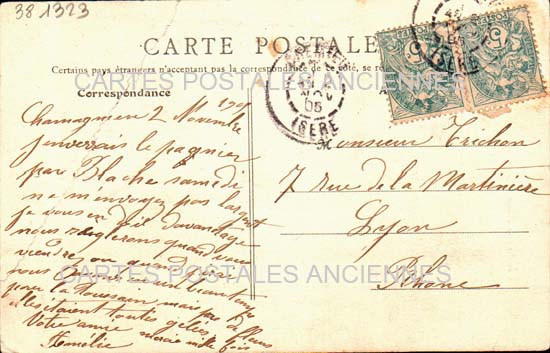 38 1323
CARTE POSTALE
Certains pays étrangers n'acceptent pas la correspondance de ce côté, se
CARTES POSTALES ANCIENNES
Correspondance
ISÈRE
05
ISÈRE
Chamagnieu 2 Novembre 190
J'enverrais le pagnier
par Blache samedi
ne m'envoyez pas l'argent
je vous en davantage
nous réglerons quand vous
viendrez
vous
pour la Toussaint mais pas de fleurs
elles étaient toutes gélées
Votre amie merci mille fois
Amélie
Monsieur Trichon
7 rue de la Martinière
Lyon
Rhône
CARTES POSTALES ANCIENNES